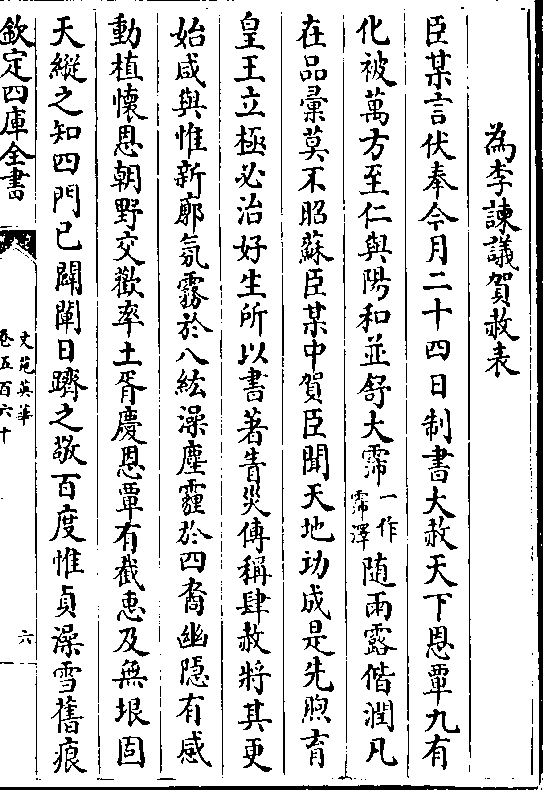 為李諫議賀赦表
臣某言伏奉今月二十四日制書大赦天下恩覃九有
化被萬方至仁與陽和並舒大霈一作霈澤随雨露偕潤凡
在品彚莫不昭蘇臣某中賀臣聞天地功成是先煦育
皇王立極必治好生所以書著眚災傳稱肆赦將其更
始咸與惟新廓氛霧於八紘澡塵霾於四裔幽隠有感
動植懷恩朝野交歡率土胥慶恩覃有截惠及無垠固
天縱之知四門已闢闡日躋之敬百度惟貞澡雪舊痕
欽定四庫全書
文苑英華
卷五百六十
六